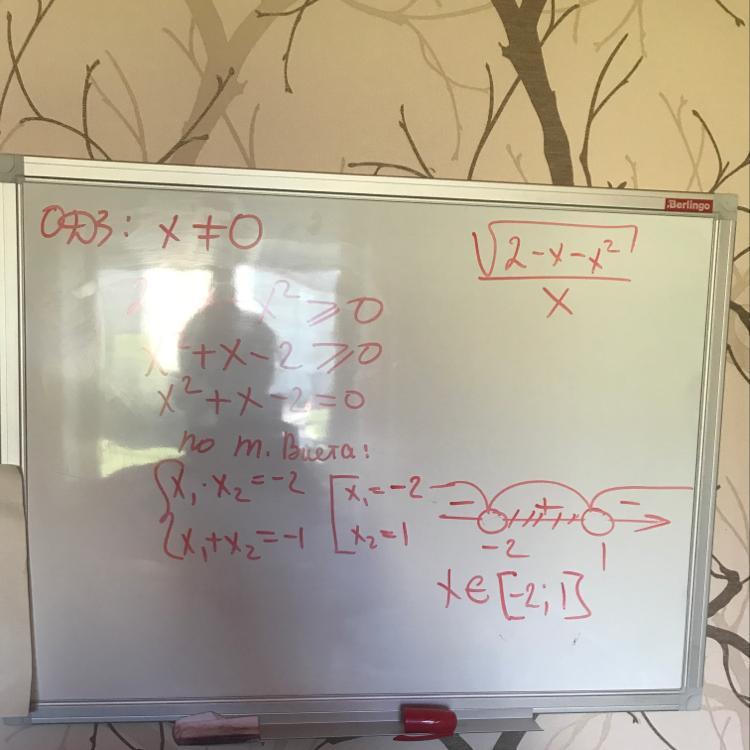 Berlingo
ОДЗ: x ≠ 0
√(2-x-x²)
x
2-x-x² ≥ 0
x²+x-2 ≥ 0
x²+x-2=0
по т. Виета:
{x₁·x₂=-2
{x₁+x₂=-1
[x₁=-2
[x₂=1
- + -
-2 1
x∈[-2;1]